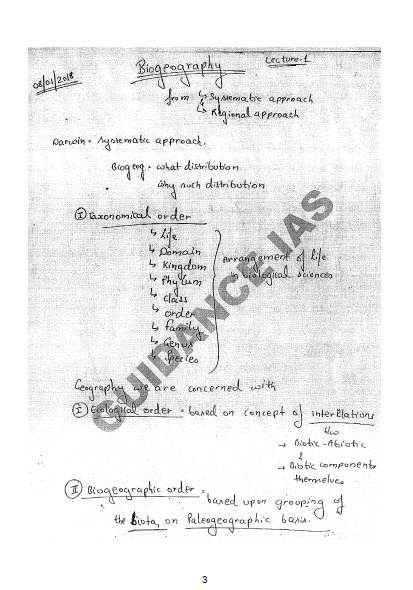 Lecture-1
Biogeography
08/01/2018
from ↳ Systematic approach
↳ Regional approach
Darwin = Systematic approach.
Biogeog = what distribution
why such distribution
I Taxonomical order
↳ Life
↳ Domain
↳ Kingdom
↳ Phylum
↳ Class
↳ order
↳ family
↳ Genus
↳ Species
Arrangement of life
in biological sciences
Geography we are concerned with
I Ecological order = based on concept of interRlations
b/w
→ Biotic-Abiotic
&
→ Biotic components
themselves
II Biogeographic order =
based upon grouping of
the biota, on Paleogeographic basis.
GUIDANCE IAS
3